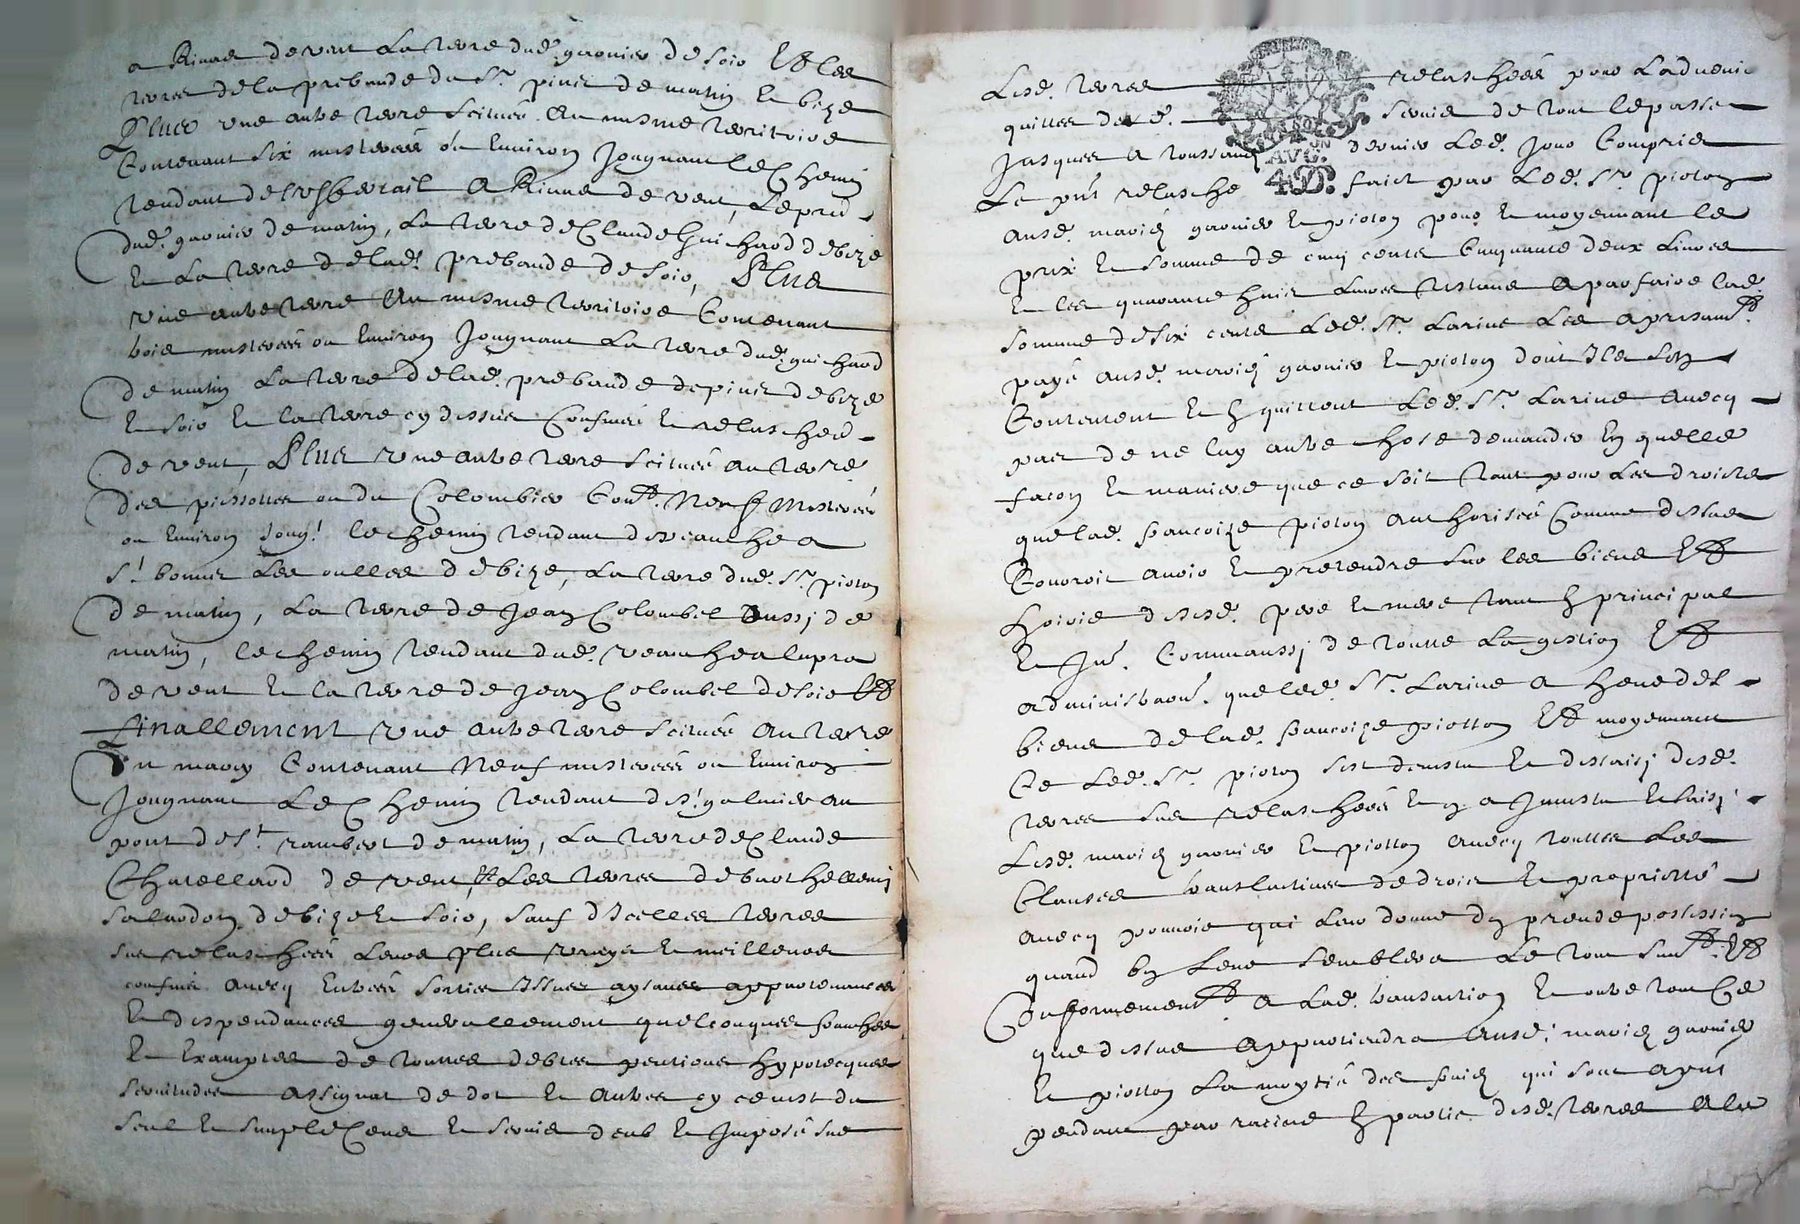 a Riune de vent La terre dud. garnier de soir Et les
terres de la prebande du Sr. piner de matin et bize
Plus une autre terre scituée au mesme territoire
Contenant six mesterées ou Environ Jougnant le Chemin
tendant de a Riune de vent, Le pred
dud. garnier de matin, La terre de Claude Guichard de bize
et La terre de lad. prebande de soir, Plus
une autre terre Au mesme territoire Contenant
trois mesterées ou Environ Jougnant La terre dud. guichard
de matin La terre de lad. prebande de piner de bize
et soir et la terre cy dessus Confinée et relaschee
de vent, Plus une autre terre scituée au terre
des piessottes ou du Colombier Cont. Neuf Mesterées
ou Environ Joug.t le chemin tendant de veauche a
St. bonnet Les oulles de bize, La terre dud. Sr. pioton
de matin, La terre de Jean Colombet Aussj de
matin, le chemin tendant dud. veauche a lupra
de vent et la terre de Jean Colombet de soir Et
finallement une autre terre scituée au terre
du marey Contenant Neuf mesterées ou Environ
Jougnant Le Chemin tendant de St. galmier au
pont de St. rambert de matin, La terre de Claude
Chatellard de vent, et Les terres de barthellemj
salvadon de bize et soir, sauf d'Icelles terres
sus relaschées Leurs plus vrays et meilleurs
confins avecq Entrées sorties Issues aysances appartenances
et despendances generallement quelconques franches
et Exemptes de touttes debtes pentions hypotecques
servitudes assignat de dot et autres cy ce n'est du
seul et simple Cens et servis deub et Imposé sur
Lesd. terres relaschées pour Ladvenir
quittes de servis de tout le passé
Jusques a toussaincts dernier Led. Jour Compris
Le pnt relasche faict par Led. Sr. pioton
ausd. mariés garnier et pioton pour et moyennant le
prix et somme de cinq cents Cinquante deux Livres
et les quarante huit Livres restans a parfaire lad.
somme de six cents Led. Sr. Larive Les a prisamt.
payé ausd. mariés garnier et pioton dont Ils sen
Contentent et quittent Led. Sr. Larive avecq
pac de ne luy autre chose demander En quelle
facon et maniere que ce soit tant pour Les droicts
que lad. francoize pioton authorisée Comme dessus
Pouvoit avoir et pretendre sur les biens Et
hoirie de sesd. pere et mere tant En principal
et Int. Comm'aussj de toutte La gestion Et
administraon. que led. Sr. Larive a heue des
biens de lad. francoize piotton Et moyennant
Ce Led. Sr. pioton s'est demis et dessaisj desd.
terres sus relaschées et En a Jnvestu et saisj
Lesd. mariés garnier et piotton avecq touttes Les
Clauses translatives de droit et proprieté
avecq pouvoir qui Leur donne d'en prendre possession
quand bon Leur semblera Le tout Suivt. Et
Conformement a Lad. transaction et outre tout Ce
que dessus appartiendra Ausd. mariés garnier
et piotton La moytié des fruicts qui sont a pnt
pendant par racine En partie desd. terres a la